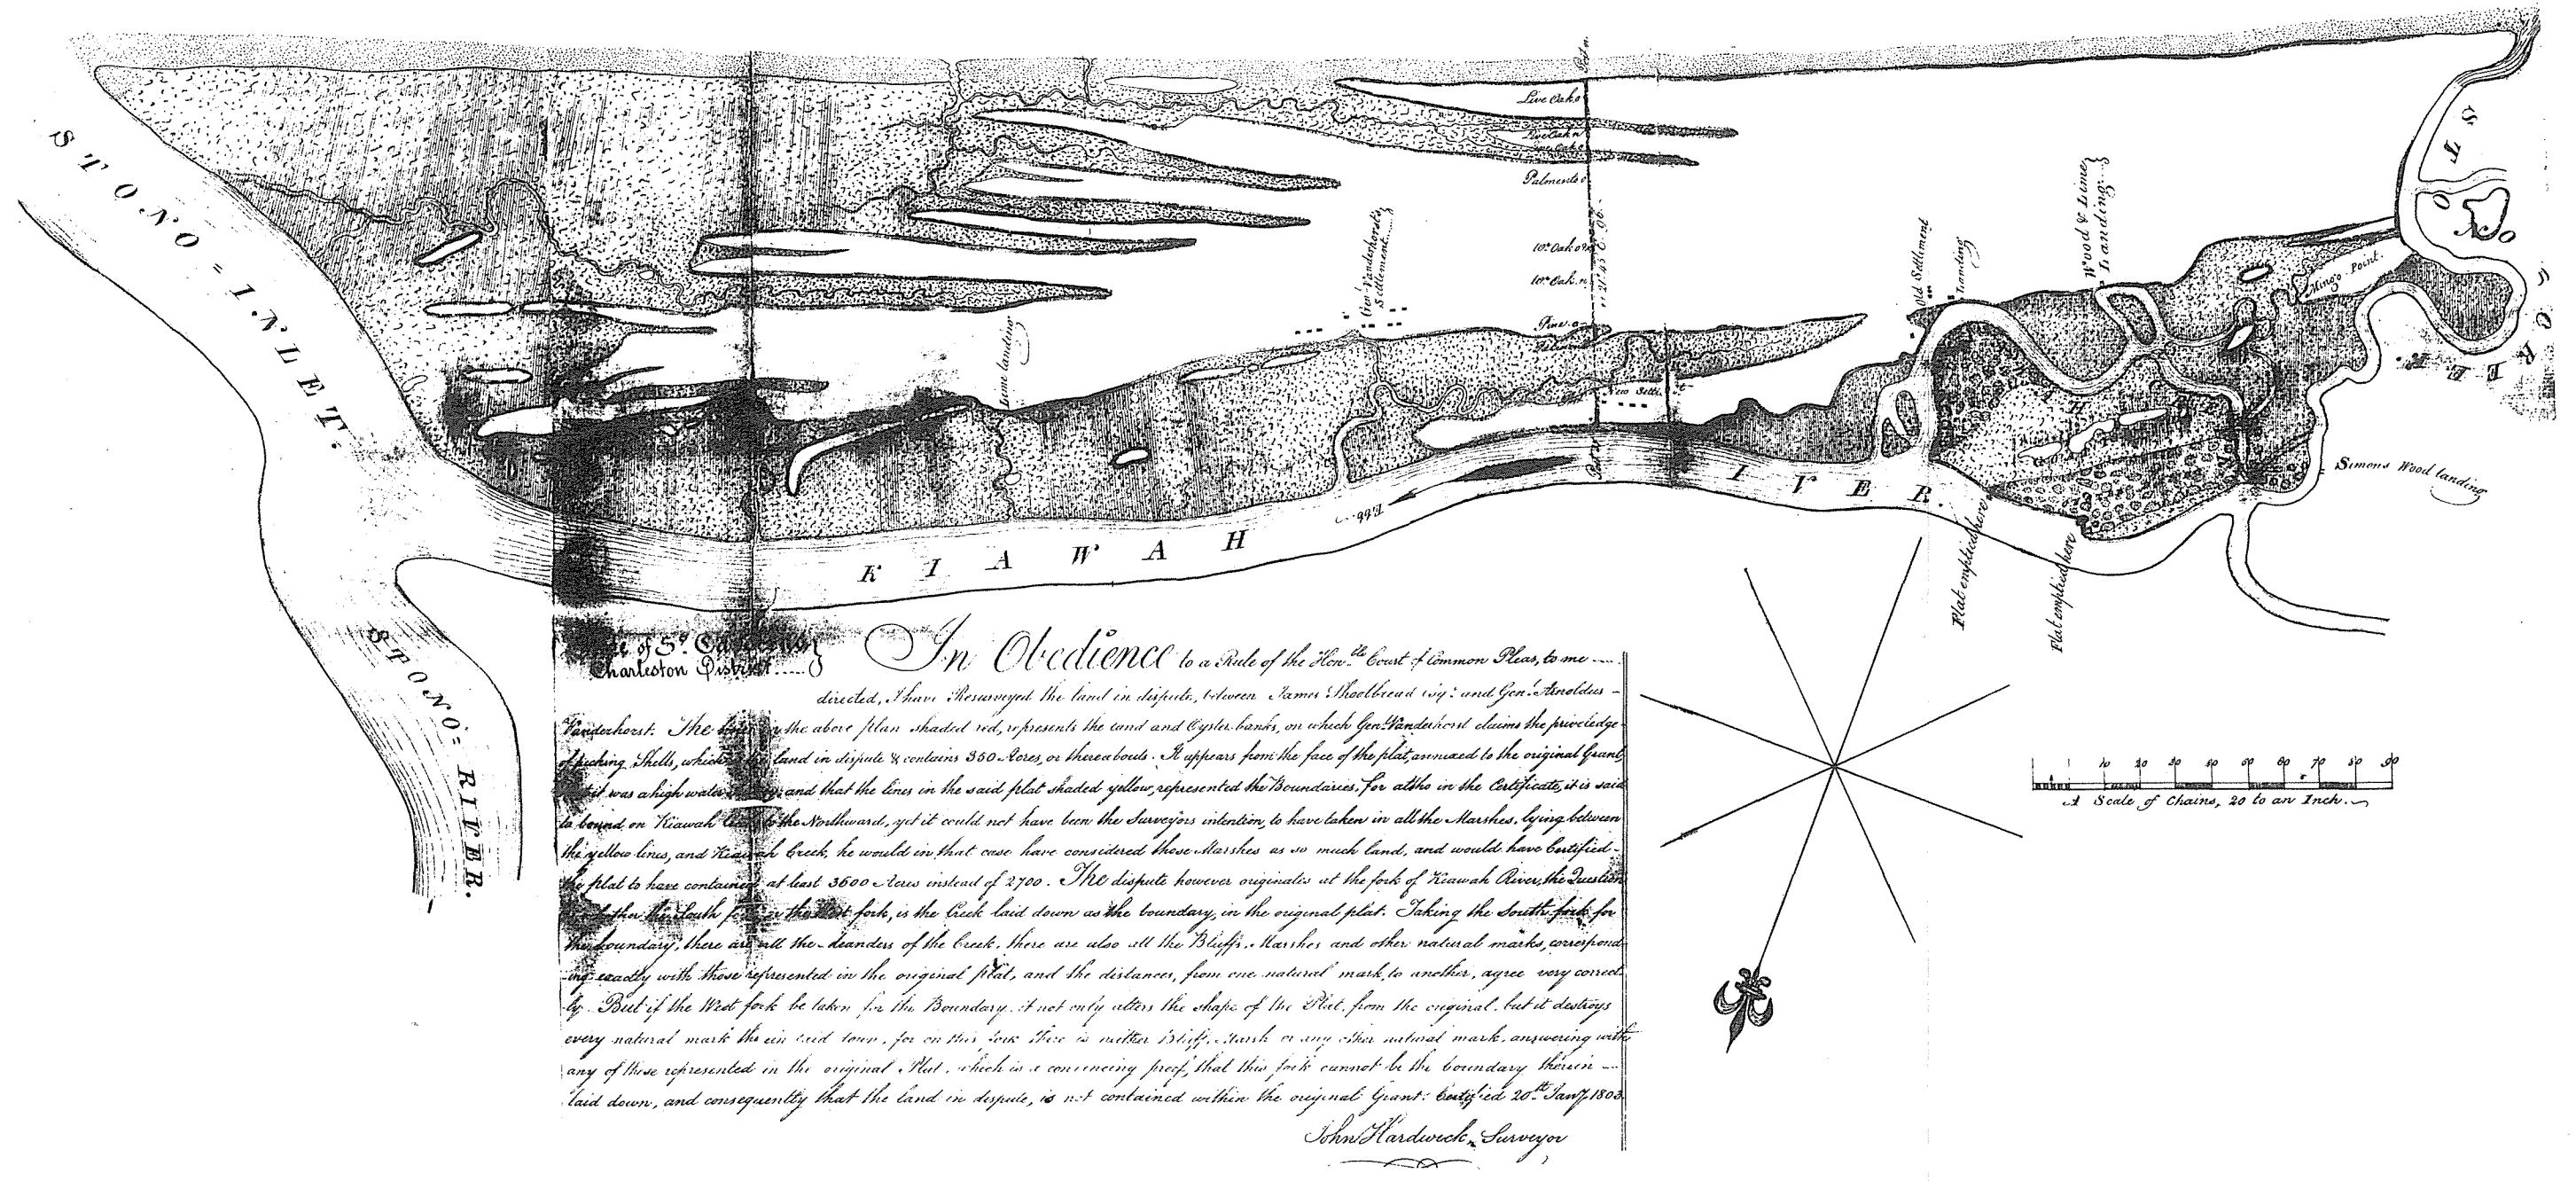 STONO = INLET.
STONO = RIVER.
KIAWAH RIVER.
Ebb
Live Oak o
Live Oak n
Palmento o
10th Oak o
10th Oak n
Pine o
Lime landing
Genl Vanderhorsts
Settlement
New Settle
Old Settlement
Landing
Wood & Lime
Landing
Mingo Point.
CREEK
Simons Wood landing
Plat emptied here
Plat emptied here
of So. 
Charleston District
In Obedience to a Rule of the Honble Court of Common Pleas, to me
directed, I have Resurveyed the land in dispute, between James Shoolbread Esqr. and Genl. Arnoldus
Vanderhorst. The the above plan shaded red, represents the land and Oyster banks, on which Genl. Vanderhorst claims the priveledge
of picking Shells, which land in dispute & contains 350 Acres, or thereabouts. It appears from the face of the plat, annexed to the original Grant,
it was a high water and that the lines in the said plat shaded yellow, represented the Boundaries, for altho in the Certificate, it is said
to bound on Kiawah the Northward, yet it could not have been the Surveyors intention, to have taken in all the Marshes, lying between
the yellow lines, and Kiawah Creek, he would in that case have considered those Marshes as so much land, and would have Certified
the plat to have contained at least 3600 Acres instead of 2700. The dispute however originates at the fork of Kiawah River, the Question
the South the West fork, is the Creek laid down as the boundary, in the original plat. Taking the South fork for
the boundary, there are all the Meanders of the Creek, there are also all the Bluffs, Marshes and other natural marks, correspond
ing exactly with those represented in the original plat, and the distances, from one natural mark, to another, agree very correct
ly. But if the West fork be taken for the Boundary, it not only alters the shape of the Plat, from the original, but it destroys
every natural mark therein laid down, for on this fork there is neither Bluff, Marsh or any other natural mark, answering with
any of those represented in the original Plat, which is a convincing proof, that this fork cannot be the boundary therein
laid down, and consequently that the land in dispute, is not contained within the original Grant: Certified 20th Jany. 1803
John Hardwick, Surveyor
1 10 20 30 40 50 60 70 80 90
A Scale of Chains, 20 to an Inch.